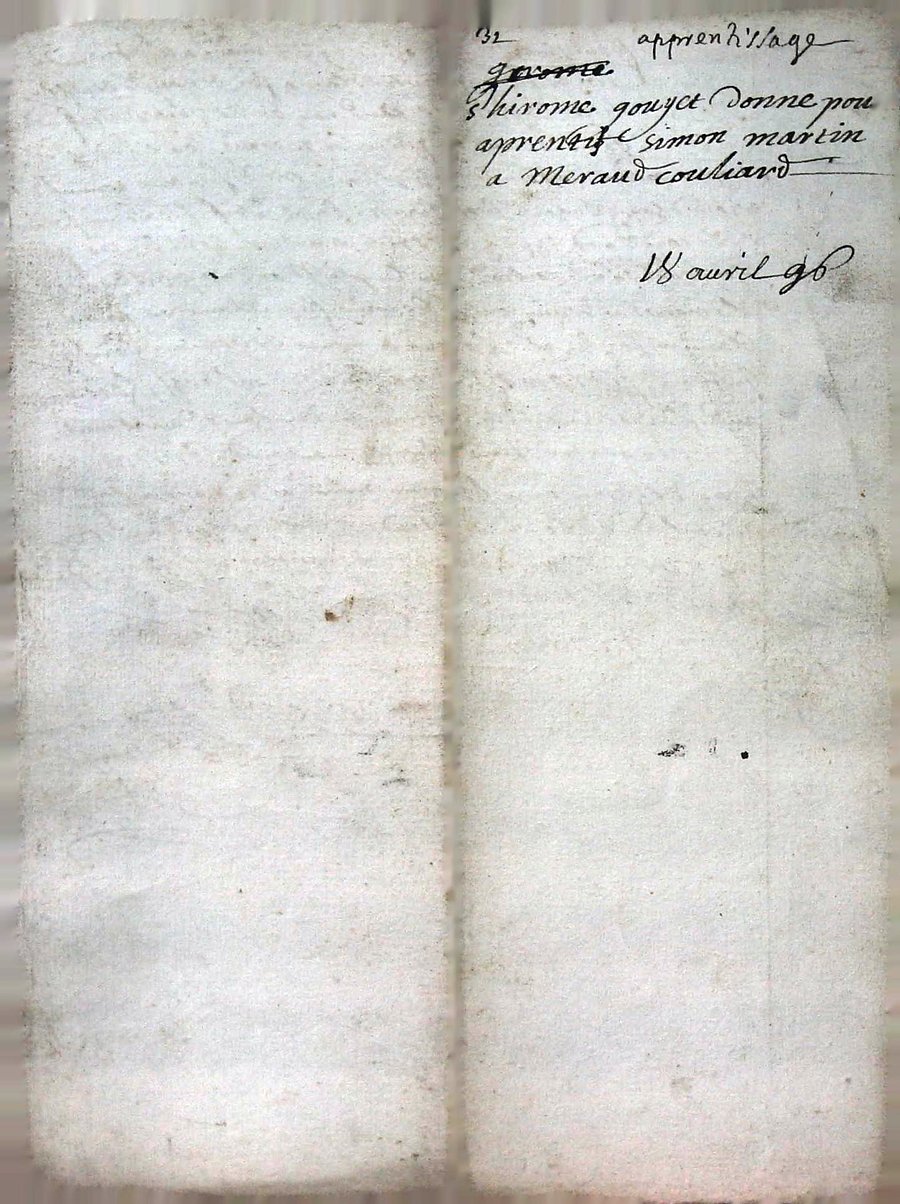 32 apprentissage
gerome
hirome gouyet donne pou
aprentif simon martin
a Meraud couliard
18 auril 96